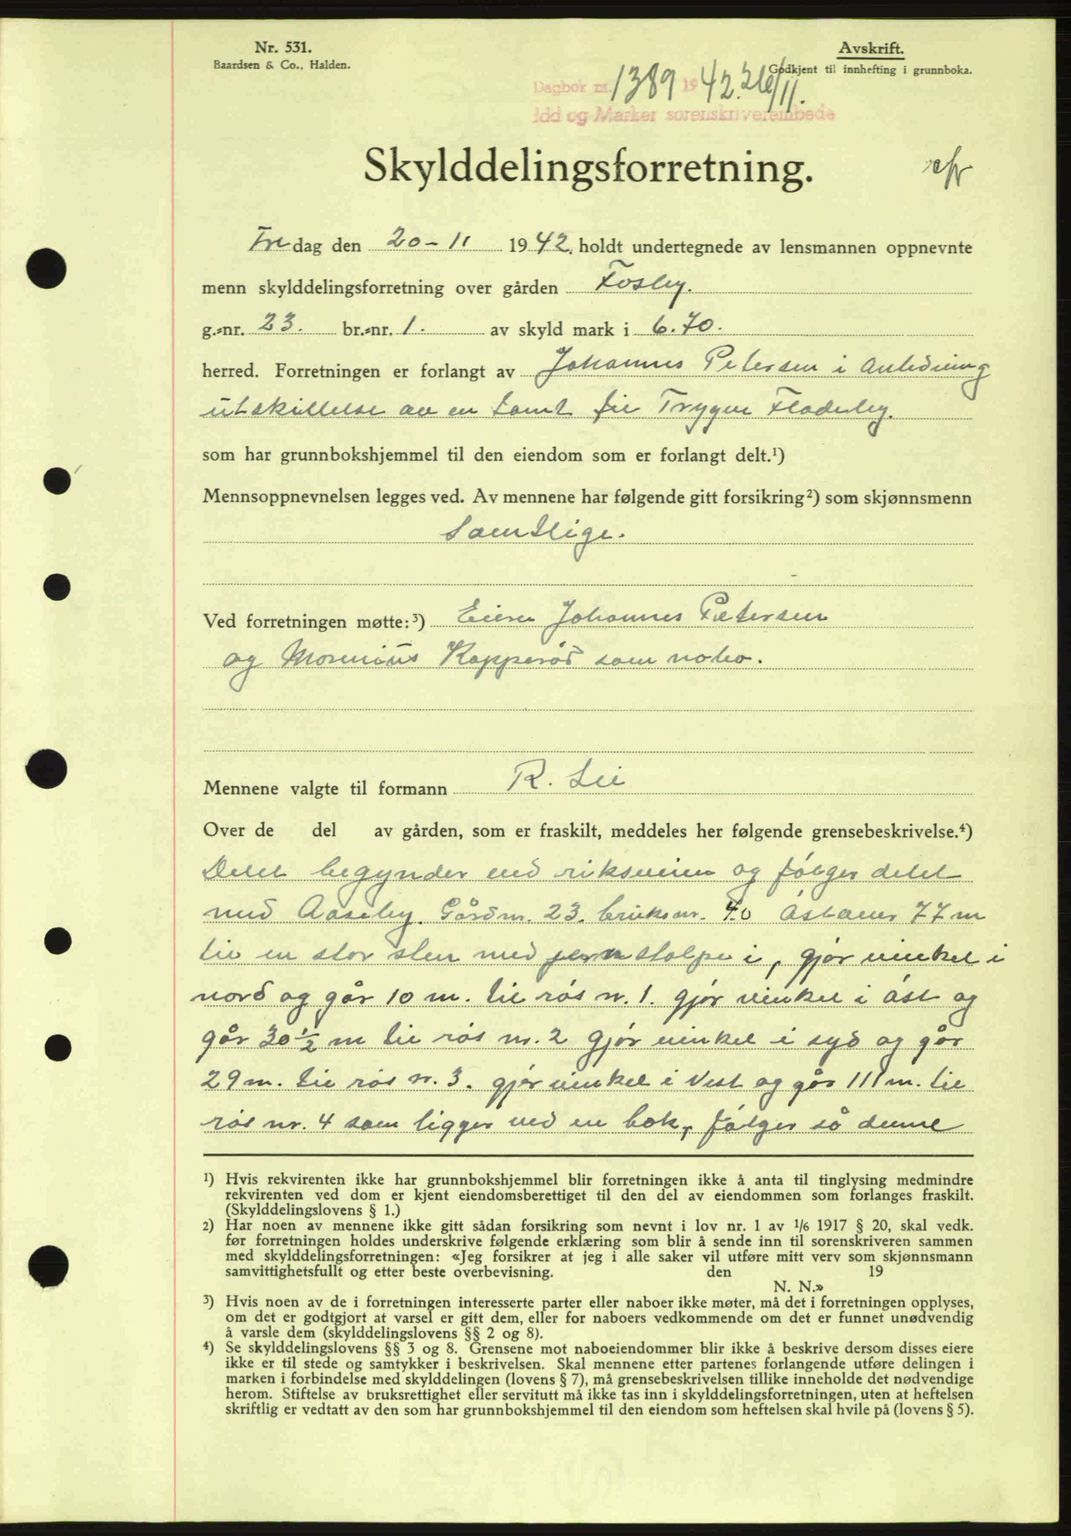 Nr. 531.
Baardsen & Co., Halden.
Avskrift.
Godkjent til innhefting i grunnboka.
Dagbok nr. 1389 1942. 26/11.
Idd og Marker sorenskriverembede
Skylddelingsforretning.
Fredag den 20-11 1942, holdt undertegnede av lensmannen oppnevnte
menn skylddelingsforretning over gården Fosby.
g.-nr. 23. br.-nr. 1. av skyld mark i 6.70.
herred. Forretningen er forlangt av Johannes Petersen i Anledning
utskillelse av en tomt til Trygve Fladeby.
som har grunnbokshjemmel til den eiendom som er forlangt delt.¹)
Mennsoppnevnelsen legges ved. Av mennene har følgende gitt forsikring²) som skjønnsmenn
Samtlige.
Ved forretningen møtte:³) Eieren Johannes Petersen
og Kopperød som nabo.
Mennene valgte til formann R. Lie
Over de del av gården, som er fraskilt, meddeles her følgende grensebeskrivelse.⁴)
Delet begynder ved riksveien og følger delet
med Aaseby. Gårdnr. 23. bruksnr. 40 østover 77 m
til en stor sten med jernstolpe i, gjør vinkel i
nord og går 10 m. til røs nr. 1. gjør vinkel i øst og
går 30 ½ m til røs nr. 2 gjør vinkel i syd og går
29 m. til røs nr. 3. gjør vinkel i Vest og går 111 m. til
røs nr. 4 som ligger ved en bæk, følger så denne
¹) Hvis rekvirenten ikke har grunnbokshjemmel blir forretningen ikke å anta til tinglysing medmindre
rekvirenten ved dom er kjent eiendomsberettiget til den del av eiendommen som forlanges fraskilt.
(Skylddelingslovens § 1.)
²) Har noen av mennene ikke gitt sådan forsikring som nevnt i lov nr. 1 av 1/6 1917 § 20, skal vedk.
før forretningen holdes underskrive følgende erklæring som blir å sende inn til sorenskriveren sammen
med skylddelingsforretningen: «Jeg forsikrer at jeg i alle saker vil utføre mitt verv som skjønnsmann
samvittighetsfullt og etter beste overbevisning. den 19
N. N.»
³) Hvis noen av de i forretningen interesserte parter eller naboer ikke møter, må det i forretningen opplyses,
om det er godtgjort at varsel er gitt dem, eller for naboers vedkommende om det er funnet unødvendig
å varsle dem (skylddelingslovens §§ 2 og 8).
⁴) Se skylddelingslovens §§ 3 og 8. Grensene mot naboeiendommer blir ikke å beskrive dersom disses eiere
ikke er til stede og samtykker i beskrivelsen. Skal mennene etter partenes forlangende utføre delingen i
marken i forbindelse med skylddelingen (lovens § 7), må grensebeskrivelsen tillike inneholde det nødvendige
herom. Stiftelse av bruksrettighet eller servitutt må ikke tas inn i skylddelingsforretningen, uten at heftelsen
skriftlig er vedtatt av den som har grunnbokshjemmel til den eiendom som heftelsen skal hvile på (lovens § 5).